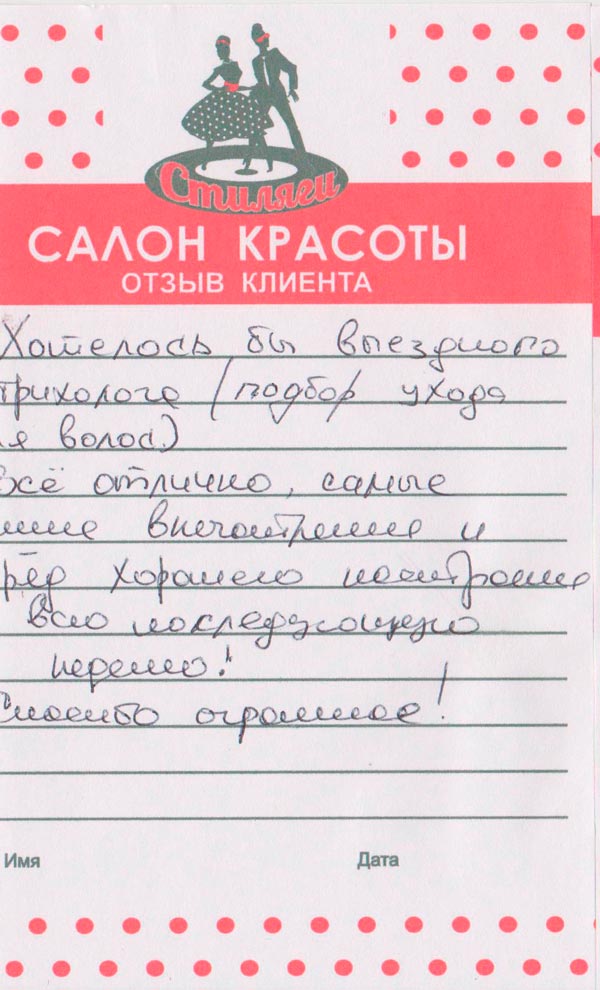 Стиляги
САЛОН КРАСОТЫ
ОТЗЫВ КЛИЕНТА
Хотелось бы выездного
трихолога (подбор ухода
ля волос)
всё отлично, самые
впечатление и
ряд хорошего настроение
всю последующую
неделю!
Спасибо огромное!
Имя Дата